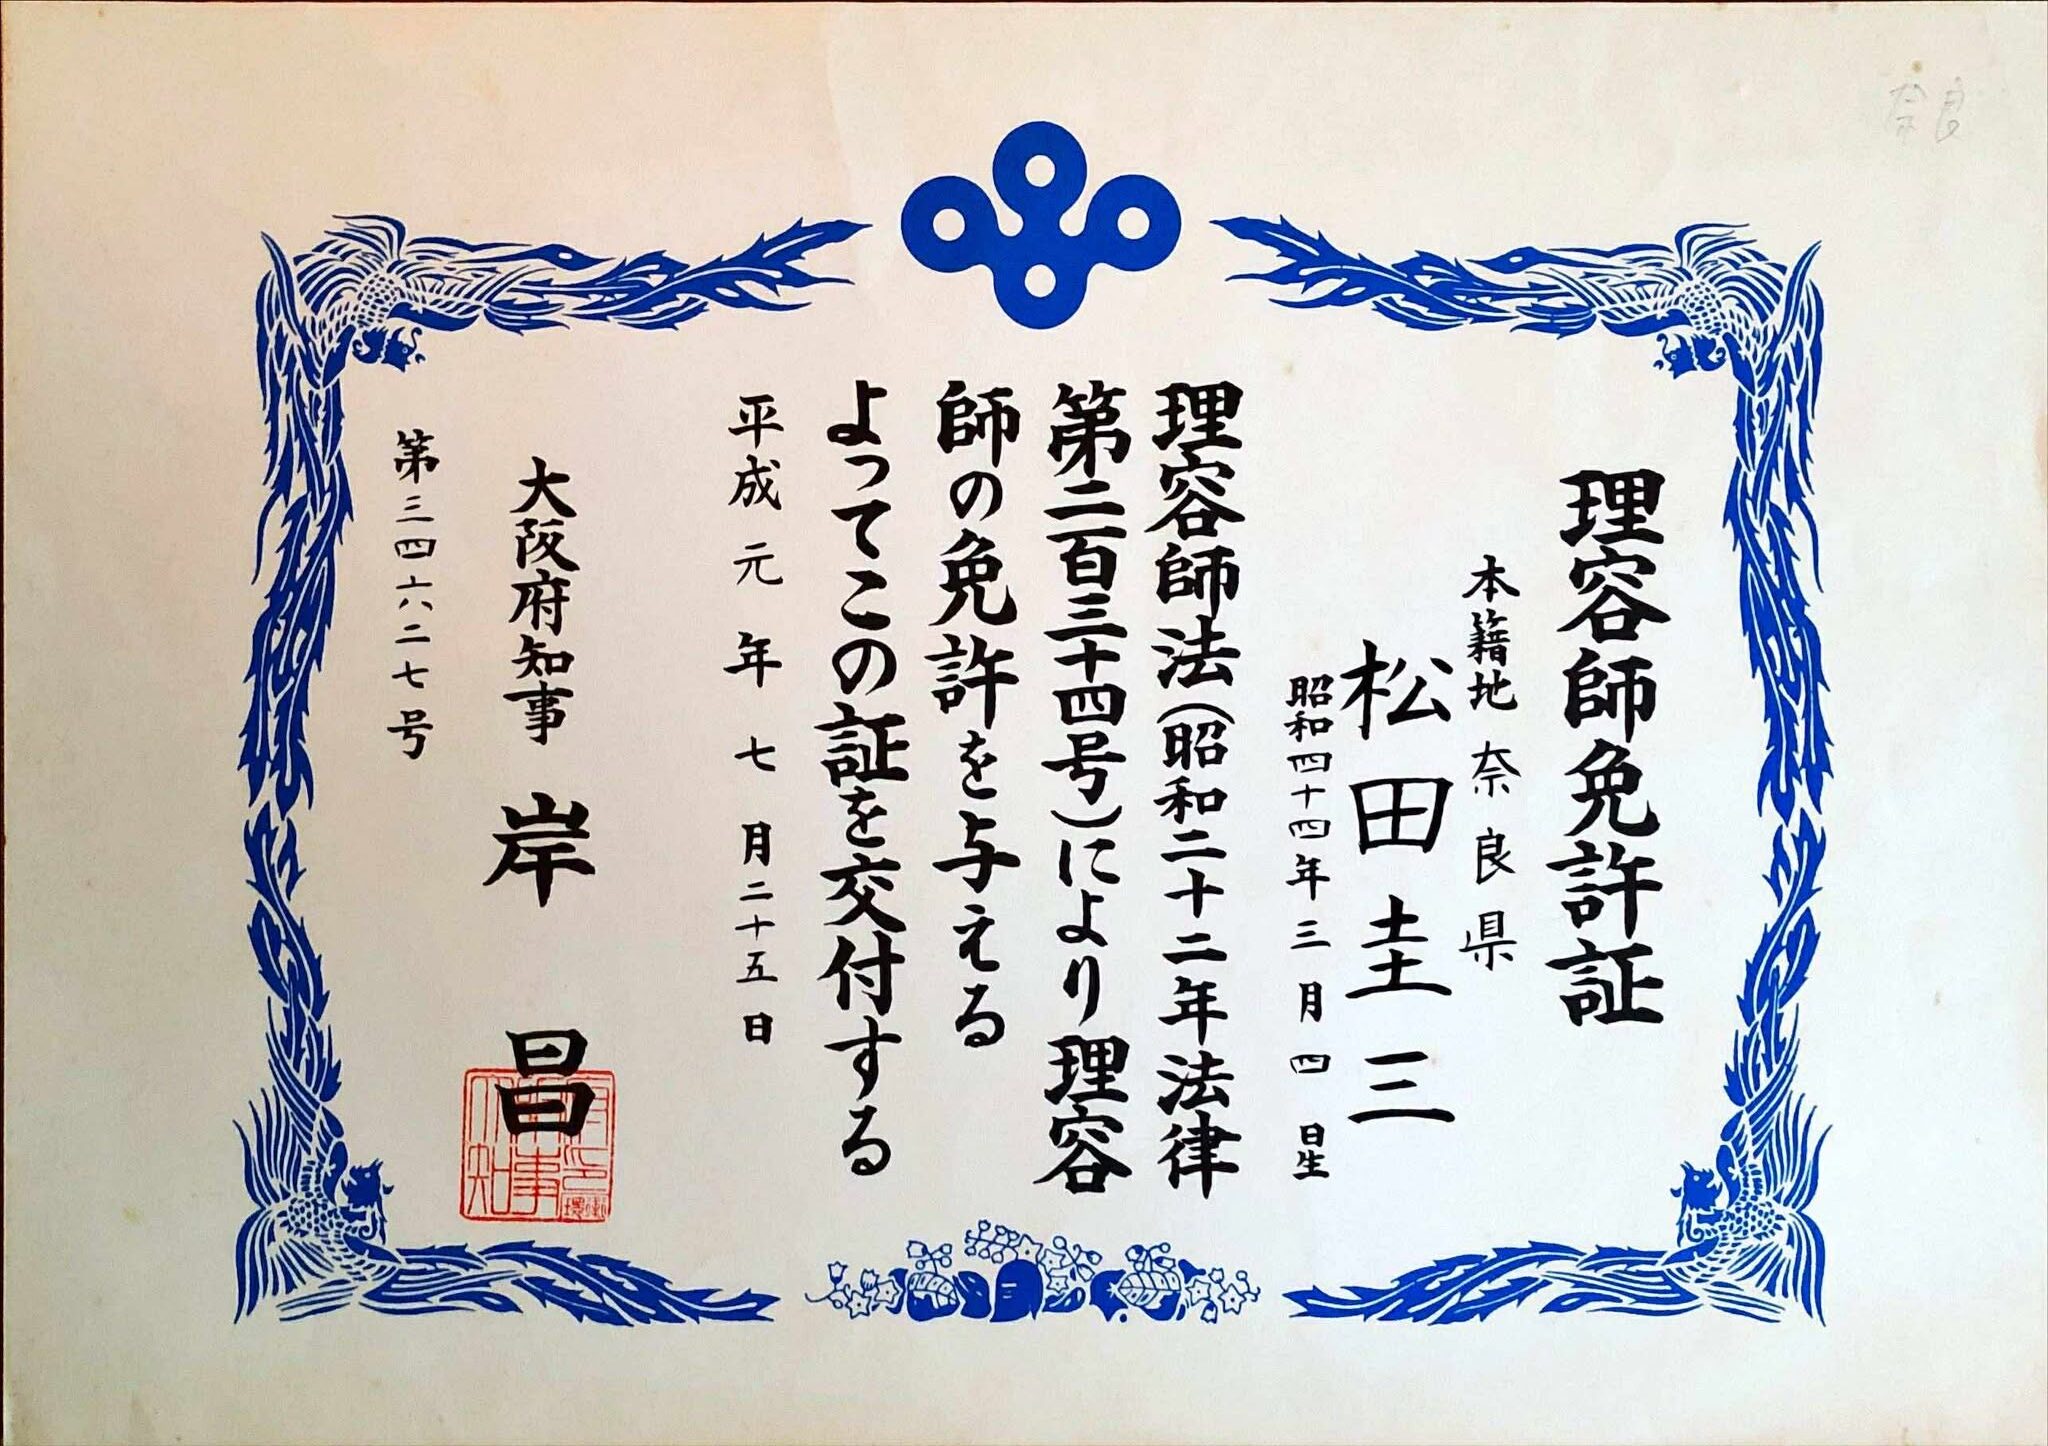 奈良
理容師免許証
本籍地 奈良県
松田圭三
昭和四十四年三月四日生
理容師法(昭和二十二年法律
第二百三十四号)により理容
師の免許を与える
よってこの証を交付する
平成元年七月二十五日
大阪府知事 岸昌
第三四六二七号